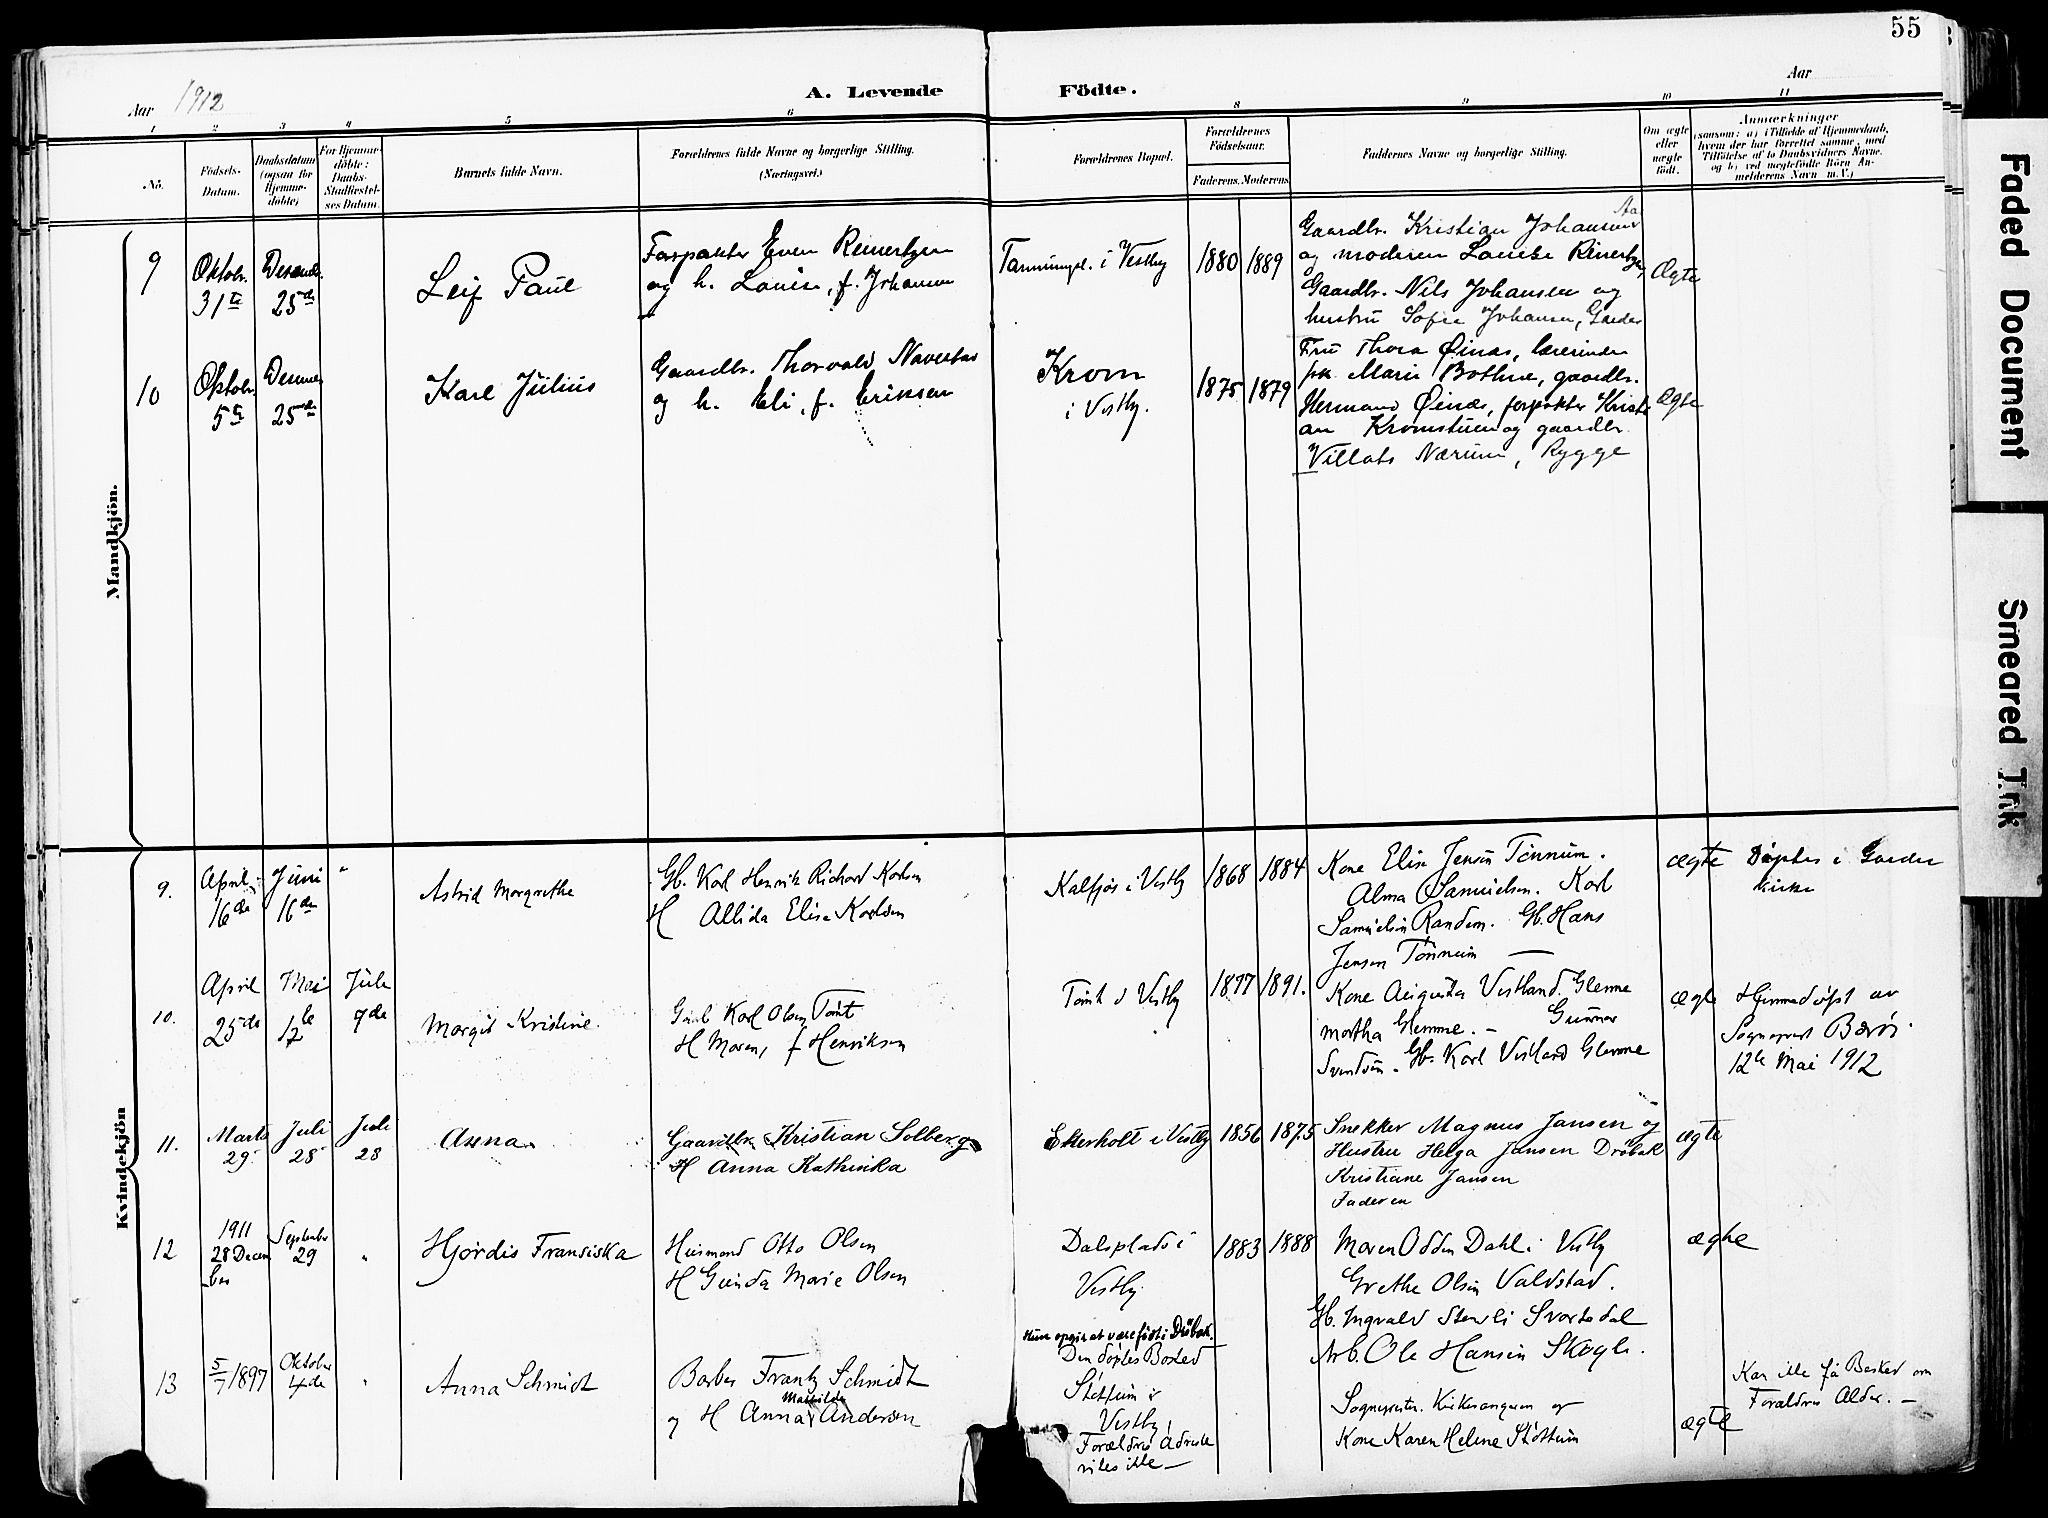 55
Aar 1912
A. Levende Födte.
Aar
1 2 3 4 5 6 8 9 10 11
No.
Födsels-
Datum.
Daabsdatum
(ogsaa for
Hjemme-
döbte)
For Hjemme-
döbte:
Daabs-
Stadfæstel-
ses Datum.
Barnets fulde Navn.
Forældrenes fulde Navne og borgerlige Stilling.
(Næringsvei.)
Forældrenes Bopæl.
Forældrenes
Födselsaar.
Faderens. Moderens.
Faddernes Navne og borgerlige Stilling.
Om ægte
eller
uægte
födt.
Anmærkninger
(saasom: a) i Tilfælde af Hjemmedaab,
hvem der har forrettet samme, med
Tilföielse af to Daabsvidners Navne.
og b) ved uægtefödte Börn An-
melderens Navn m. V.)
Mandkjön.
9
Oktobr.
31te
Desembr.
25de
Leif Paul
Forpakter Even Reinertsen
og h. Louise, f. Johansen
i Vestby
1880 1889
Gaardbr. Kristian Johansen
og moderen Louise Reinertsen,
Gaardbr. Nils Johansen og
hustru Sofie Johansen, Garder
Ægte
10
Oktobr.
5te
25de
Karl Julius
Gaardbr. Thorvald Naverstad
og h. Eli, f. Eriksen
Krom
i Vestby.
1875 1879
Fru Thora Øinæs, lærerinde
frk. Marie Bothne, gaardbr.
Hermand Øinæs, forpakter Kristi
an Kromstuen og gaardbr.
Nærum, Rygge
Ægte
Kvindekjön
9.
April
16de
Juni
16de
"
Astrid Margrethe
Gb. Karl Henrik Richard Karlsen
H Allida Elise Karlsen
i Vestby
1868 1884
Kone Elise Jensen Tönnum.
Alma Samuelsen. Karl
Samuelsen Randem. Gb. Hans
Jensen Tönnum —
ægte
Döptes i Garder
kirke
10.
April
25de
Mai
12te
Juli
7de
Margit Kristine.
Karl Olsen Tomt
H Maren, f Henriksen
Tomt i Vestby
1877 1891.
Kone Augusta Vestland. Glenne
Martha Glenne. — Gunnar
Svendsen. Gb. Karl Vestland Glenne
ægte
Hjemmedöpt av
Sogneprest Barös
12te Mai 1912
11.
Marts
29
Juli
28
Juli
28
Anna
Gaardbr. Kristian Solberg
H Anna Kathinka
Ekerholt i Vestby
1856 1875
Snekker Magnus Jansen og
Hustru Helga Jansen Dröbak
Kristiane Jansen
Faderen
ægte
12
1911
28 Decem
ber
September
29
"
Hjördis Fransiska
Husmand Otto Olsen
H Gunda Marie Olsen
Dalsplads i
Vestby
1883 1888
Maren Odden Dahl i Vestby
Grethe Olsen Valdstad.
Gb. Ingvald Stenli Svartedal
Arb. Ole Hansen Skogli.
ægte
13
5/7 1897
Oktober
4de
"
Anna Schmidt
Barber Frantz Schmidt
Mathilde
og H Anna Andersen
Hun opgir at være födt i Dröbak.
Den döptes Bosted
Støttum i
Vestby,
Forældres Adresse
vites ikke —
Sogneprester. Kirkesangeren og
Kone Karen Helene Støttum
ægte
Kan ikke få Besked om
Forældres Alder. —
Faded Document
Smeared Ink